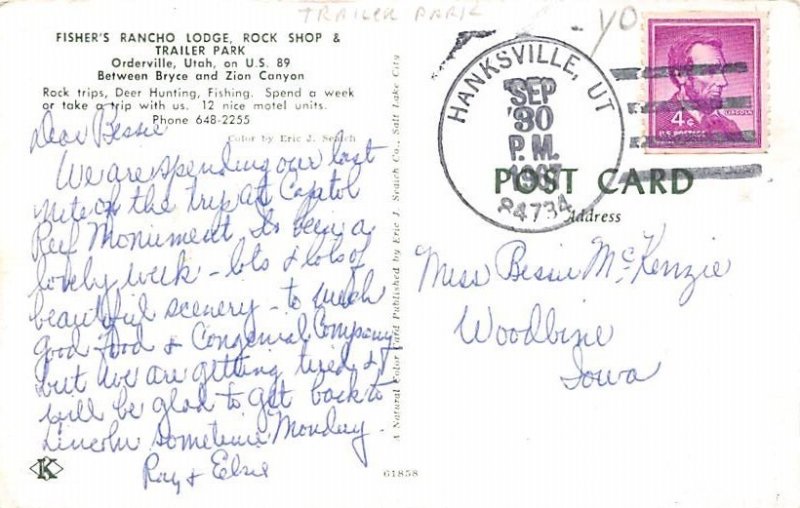 TRAILER PARK
YO
FISHER'S RANCHO LODGE, ROCK SHOP &
TRAILER PARK
Orderville, Utah, on U.S. 89
Between Bryce and Zion Canyon
Rock trips, Deer Hunting, Fishing. Spend a week
or take a trip with us. 12 nice motel units.
Phone 648-2255
Color by Eric J. Seaich
Dear Bessie
We are spending our last
nite on the trip at Capitol
Reef Monument. Its been a
lovely week - lots & lots of
beautiful scenery - to much
good food & Congenial Company
but we are getting tired &
will be glad to get back to
Lincoln sometime Monday.
Ray & Elsie
K
A Natural Color Card Published by Eric J. Seaich Co., Salt Lake City
61858
HANKSVILLE, UT
SEP
30
P.M.
1967
84734
4¢
U.S. POSTAGE
LINCOLN
POST CARD
Address
Miss Bessie McKenzie
Woodbine
Iowa